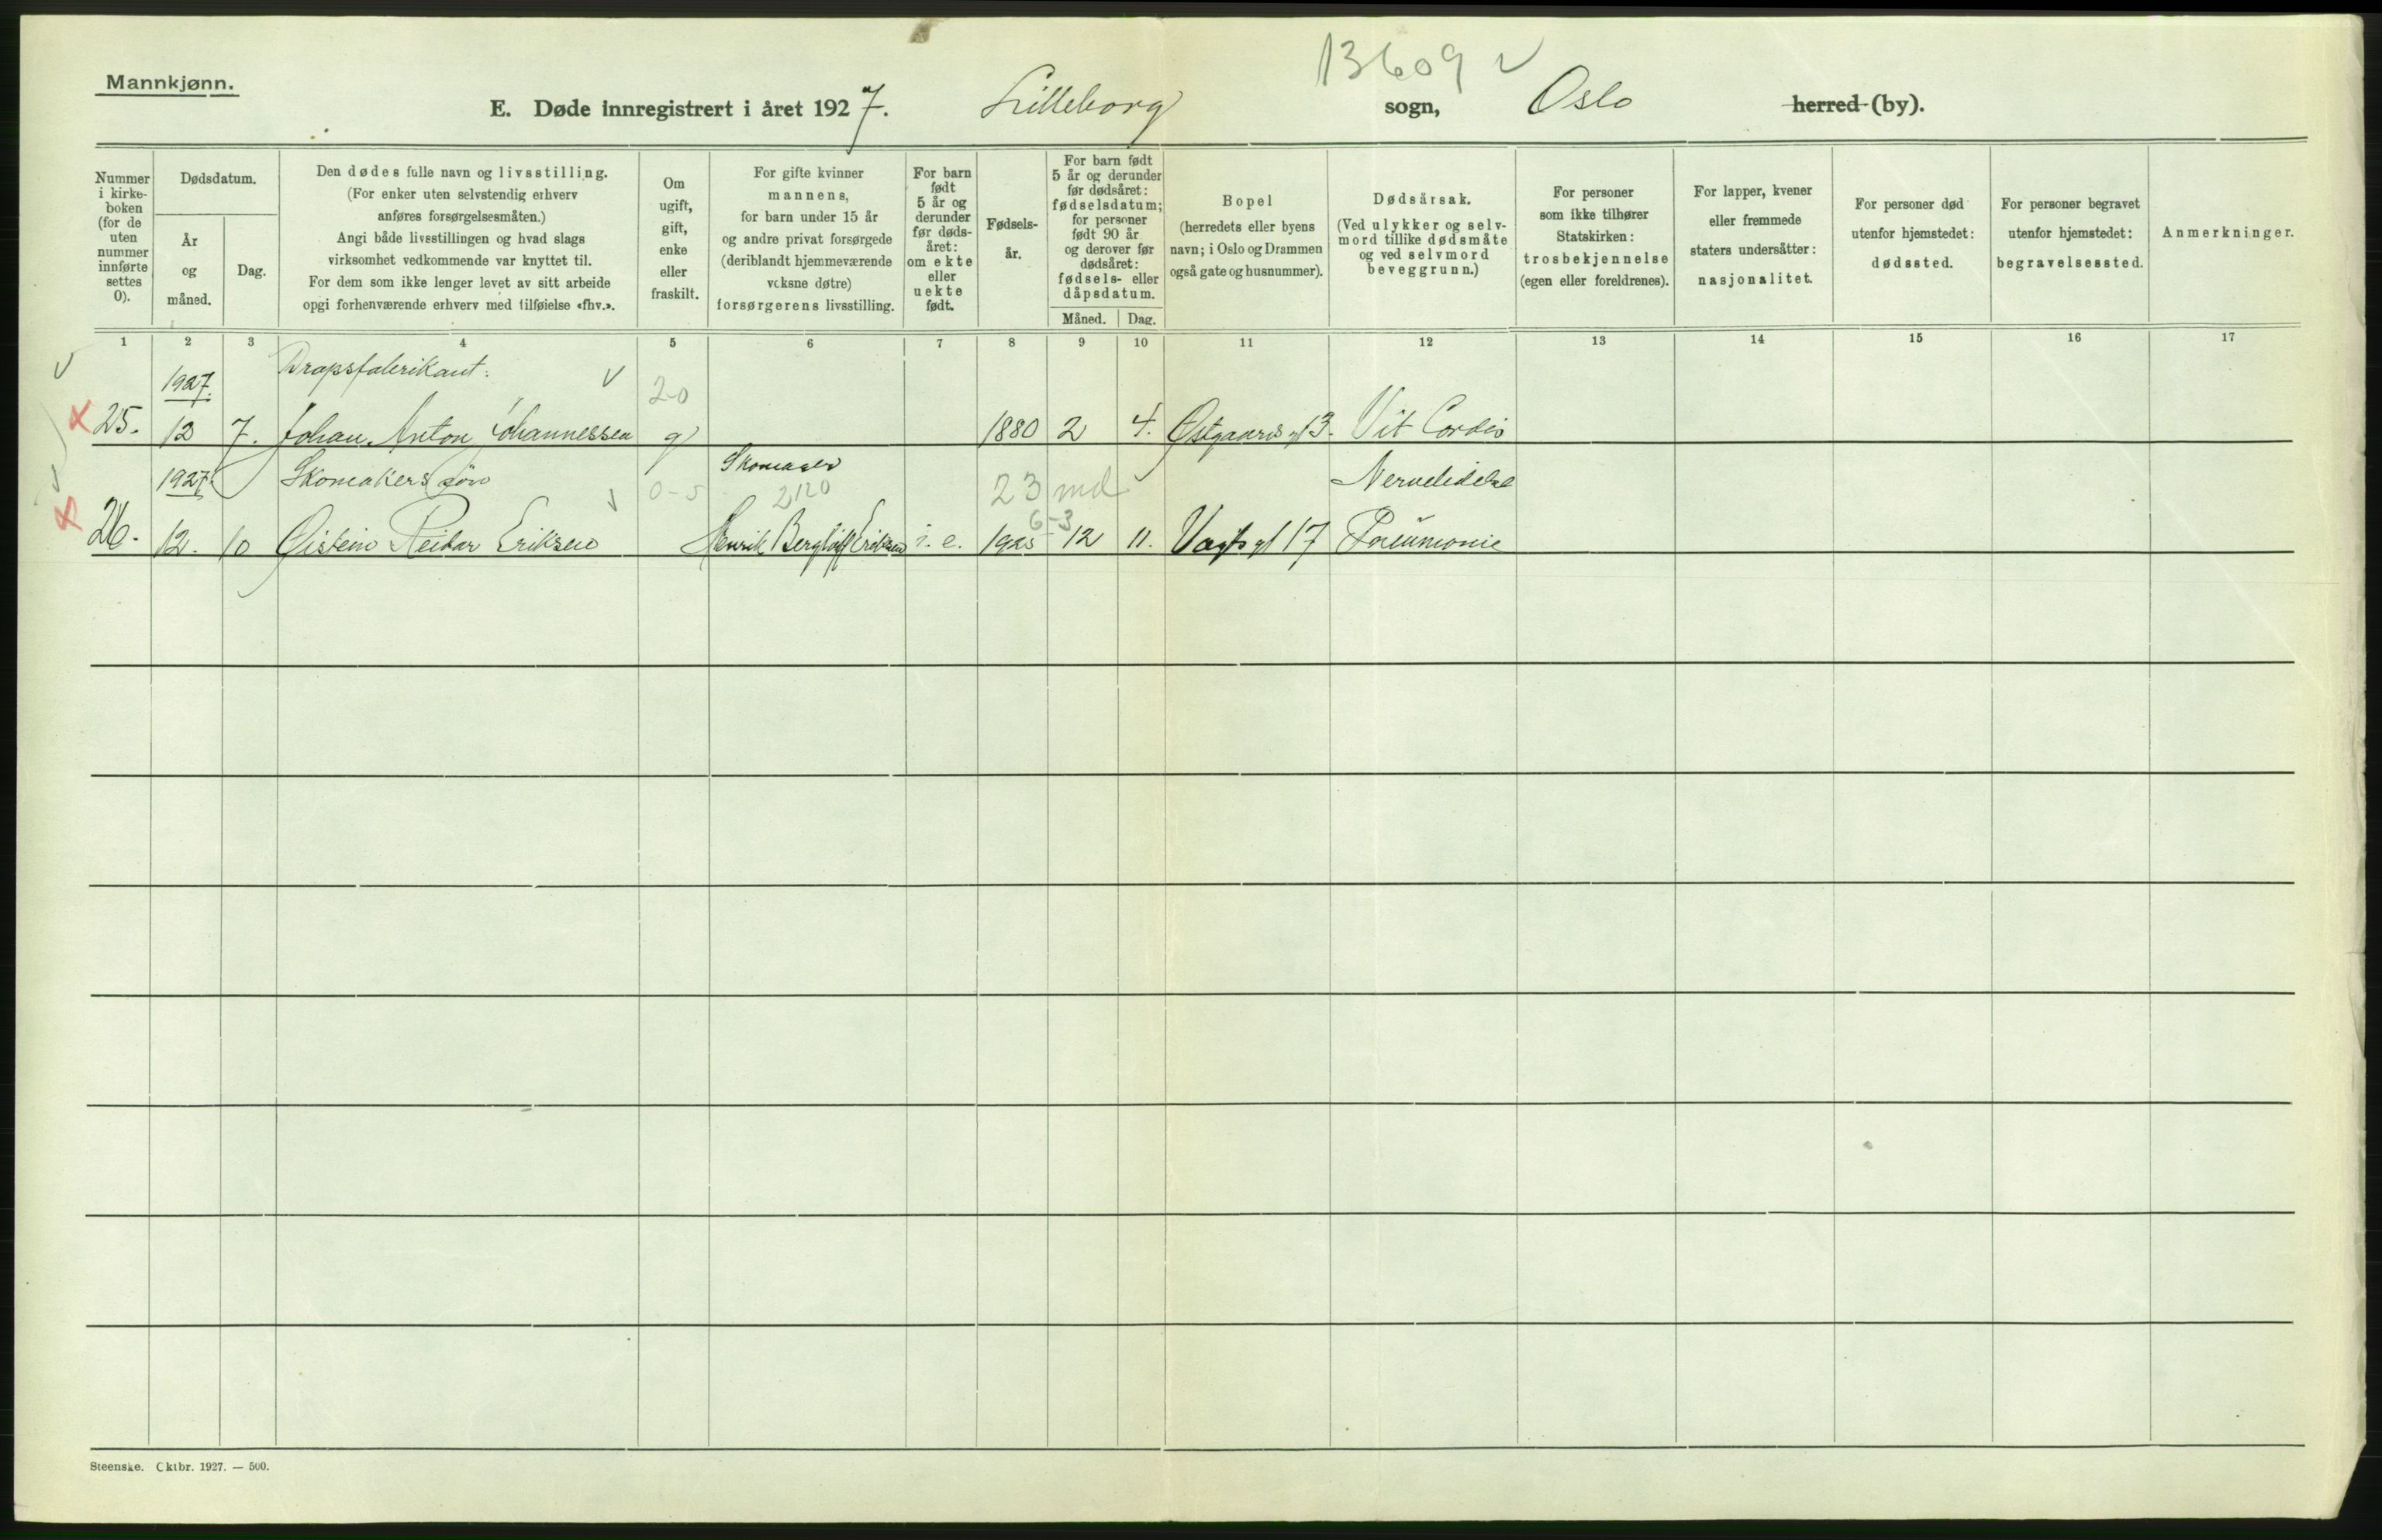 13609 V
Mannkjønn.
E. Døde innregistrert i året 1927. Lilleborg sogn, Oslo herred (by).
Nummer
i kirke-
boken
(for de
uten
nummer
innførte
settes
0).
Dødsdatum.
År
og
måned.
Dag.
Den dødes fulle navn og livsstilling.
(For enker uten selvstendig erhverv
anføres forsørgelsesmåten.)
Angi både livsstillingen og hvad slags
virksomhet vedkommende var knyttet til.
For dem som ikke lenger levet av sitt arbeide
opgi forhenværende erhverv med tilføielse «fhv.».
Om
ugift,
gift,
enke
eller
fraskilt.
For gifte kvinner
mannens,
for barn under 15 år
og andre privat forsørgede
(deriblandt hjemmeværende
voksne døtre)
forsørgerens livsstilling.
For barn
født
5 år og
derunder
før døds-
året:
om ekte
eller
uekte
født.
Fødsels-
år.
For barn født
5 år og derunder
før dødsåret:
fødselsdatum;
for personer
født 90 år
og derover før
dødsåret:
fødsels- eller
dåpsdatum.
Måned. Dag.
Bopel
(herredets eller byens
navn; i Oslo og Drammen
også gate og husnummer).
Dødsårsak.
(Ved ulykker og selv-
mord tillike dødsmåte
og ved selvmord
beveggrunn.)
For personer
som ikke tilhører
Statskirken:
trosbekjennelse
(egen eller foreldrenes).
For lapper, kvener
eller fremmede
staters undersåtter:
nasjonalitet.
For personer død
utenfor hjemstedet:
dødssted.
For personer begravet
utenfor hjemstedet:
begravelsessted.
Anmerkninger.
1 2 3 4 5 6 7 8 9 10 11 12 13 14 15 16 17
V 1927. Dropsfabrikant. V 2-0
x 25. 12 7. Johan Anton Johannessen g 1880 2 4. Østgaards gt 3. Vit Cordis
V 1927. Skomakers søn V 0-5 Skomager 2120 23 md Nervelidelse
6-3
x 26. 12. 10 Øistein Reidar Eriksen Henrik Eriksen i. e. 1925 12 11. Vogts gt 17 Pneumonie
Steenske. Oktbr. 1927. — 500.